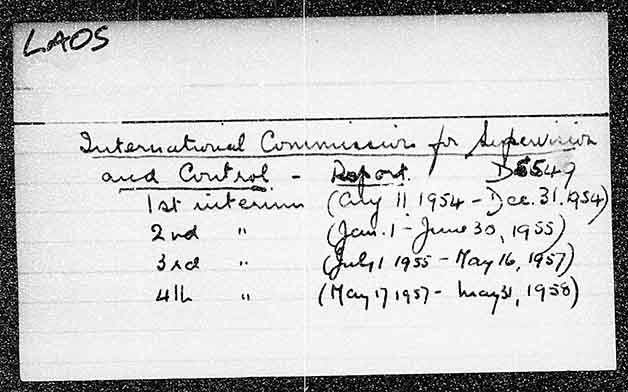 LAOS
International Commission for Supervision
and Control - Report.
1st interim (Aug 11 1954 - Dec. 31. 1954)
2nd " (Jan. 1 - June 30, 1955)
3rd " (July 1 1955 - May 16, 1957)
4th " (May 17 1957 - May 31, 1958)